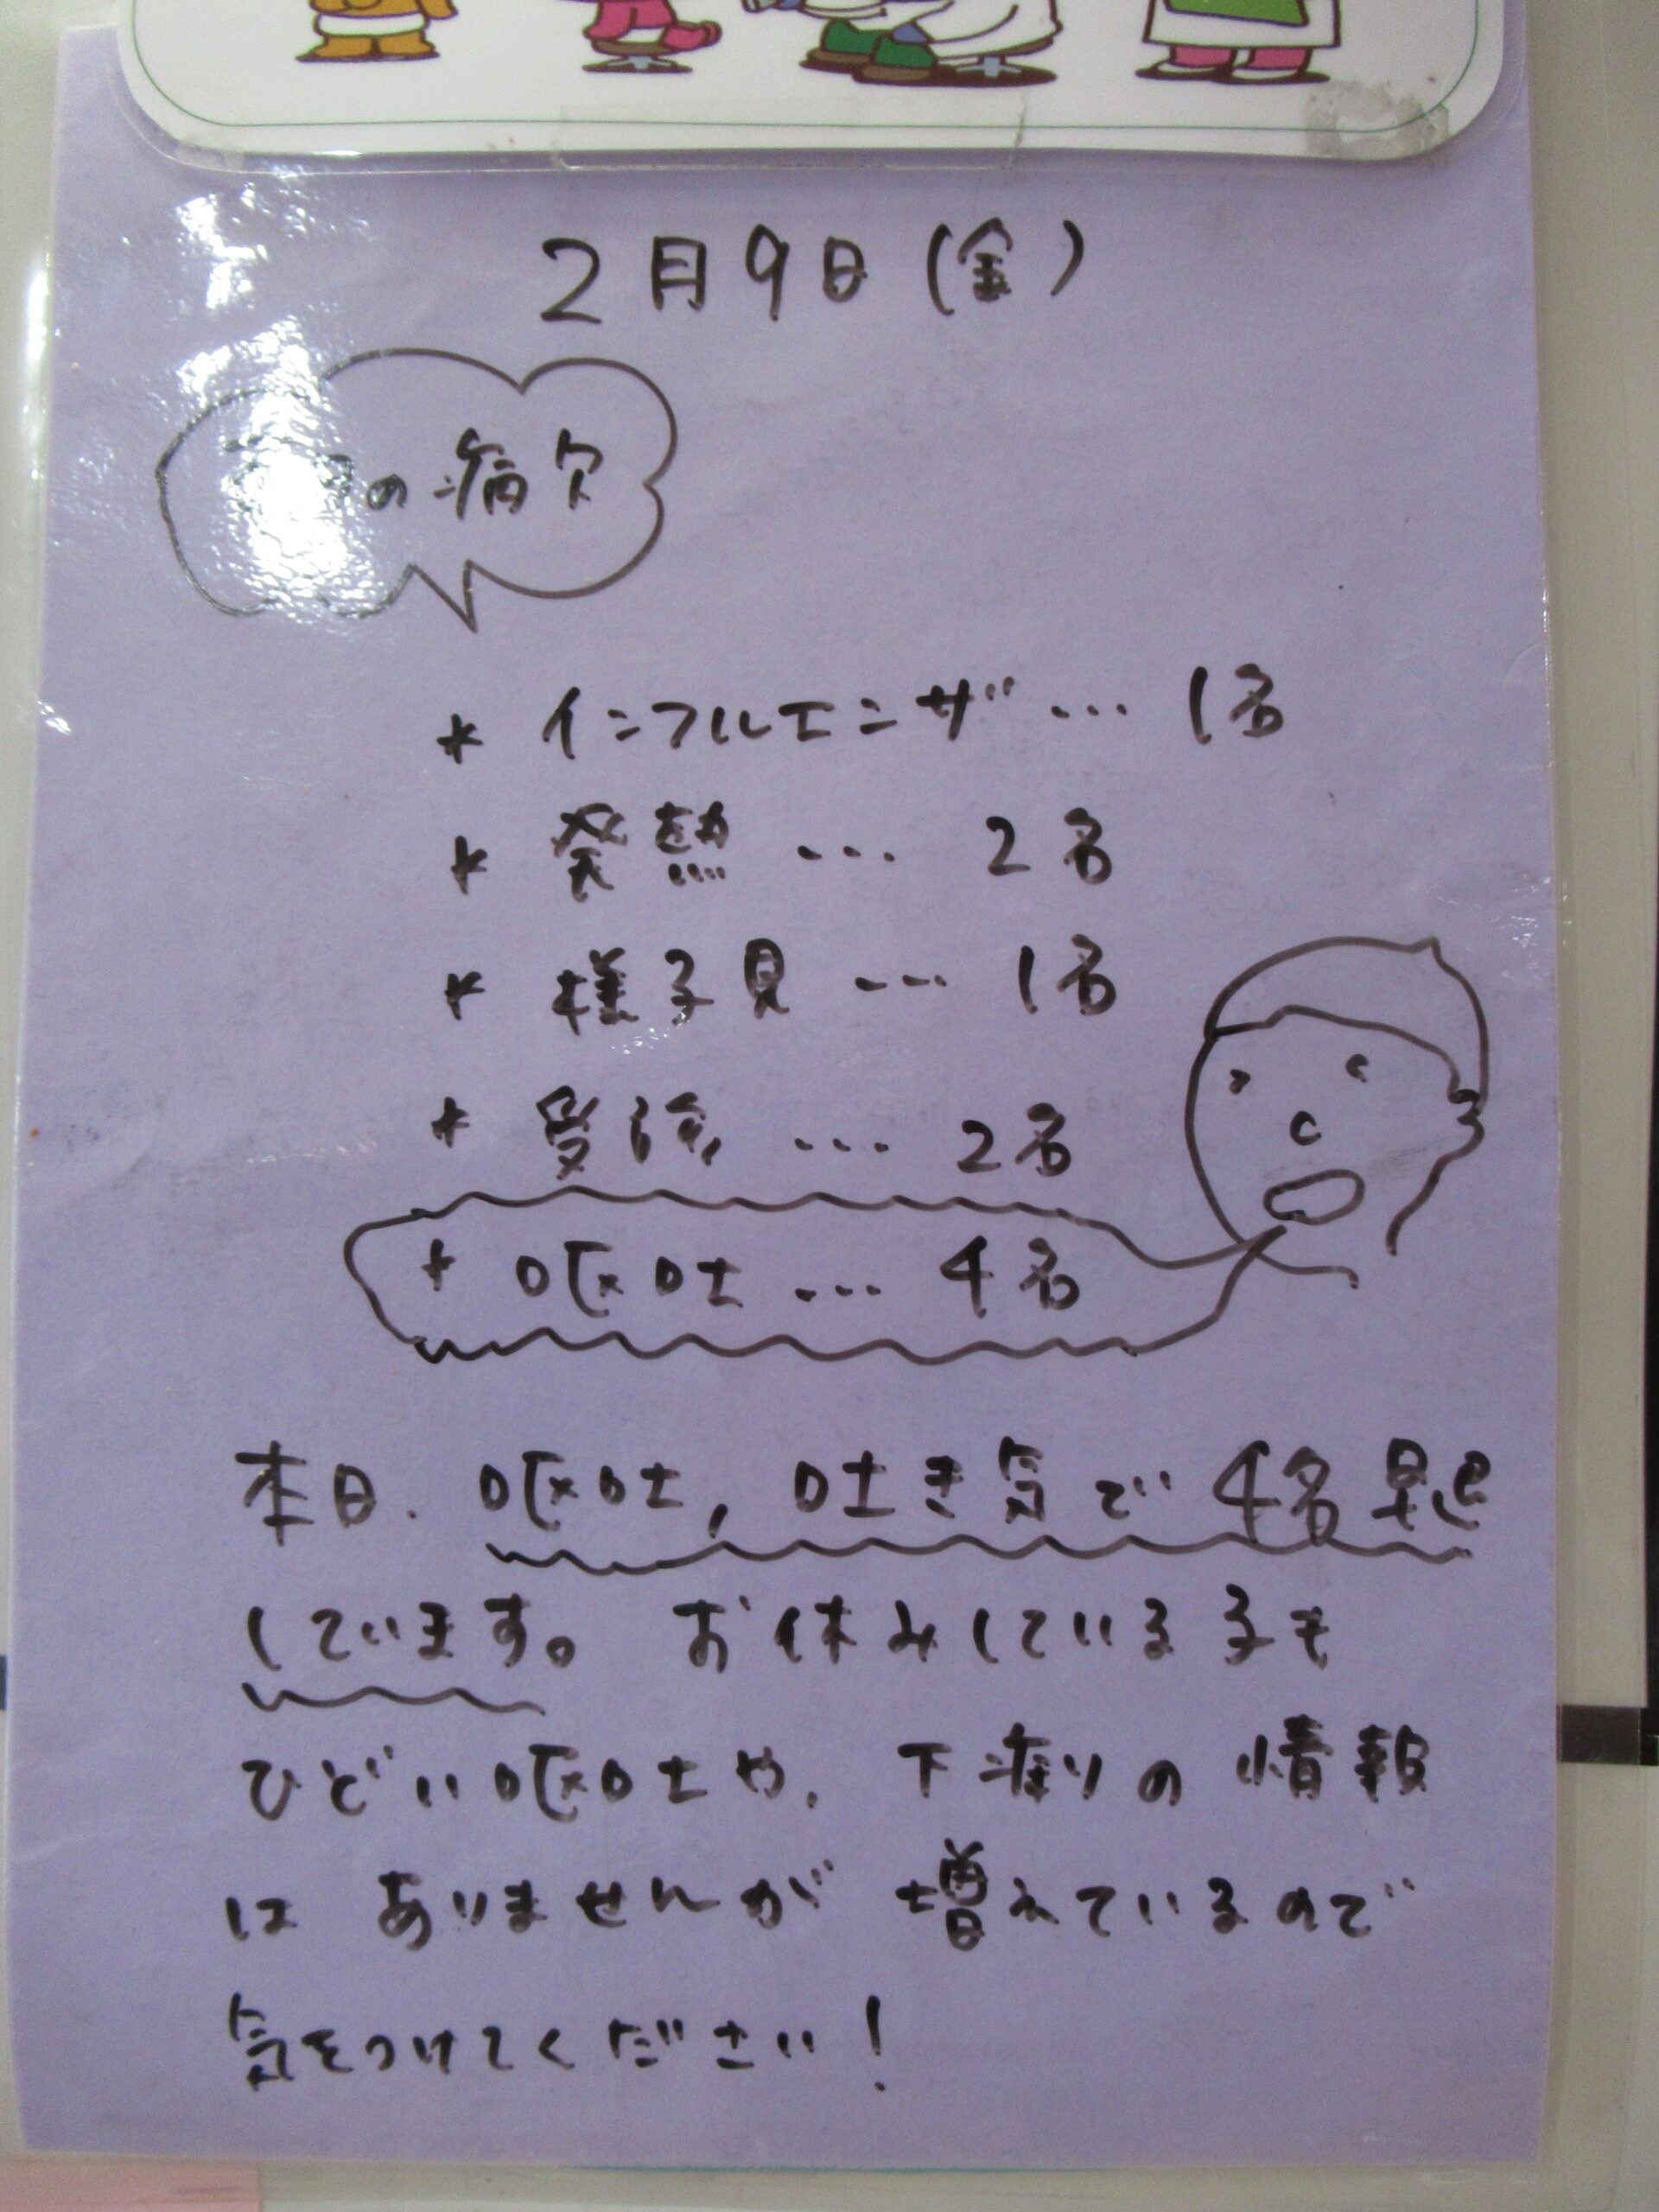 2月9日(金)
の病欠
* インフルエンザ … 1名
* 発熱 … 2名
* 様子見 … 1名
* 受診 … 2名
* 嘔吐 … 4名
本日、嘔吐、吐き気で4名早退
しています。お休みしている子も
ひどい嘔吐や、下痢りの情報
は ありませんが 増えているので
気をつけてください!